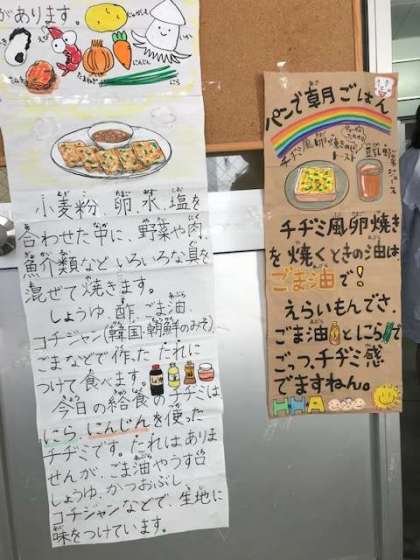 があります。
じゃがいも
にんじん
にら
小麦粉、卵、水、塩を
合わせた中に、野菜や肉、
魚介類などいろいろな具を
混ぜて焼きます。
しょうゆ、酢、ごま油、
コチジャン(韓国、朝鮮のみそ)、
ごまなどで作ったたれに
つけて食べます。
今日の給食のチヂミは
にら、にんじんを使った
チヂミです。たれはありま
せんが、ごま油やうす口
しょうゆ、かつおぶし、
コチジャンなどで、生地に
味をつけています。
パンで朝ごはん
チヂミ風卵焼き
トースト
チヂミ風卵焼き
を焼くときの油は
ごま油で!
えらいもんでさ、
ごま油とにらで
ごっつ、チヂミ感
でますねん。